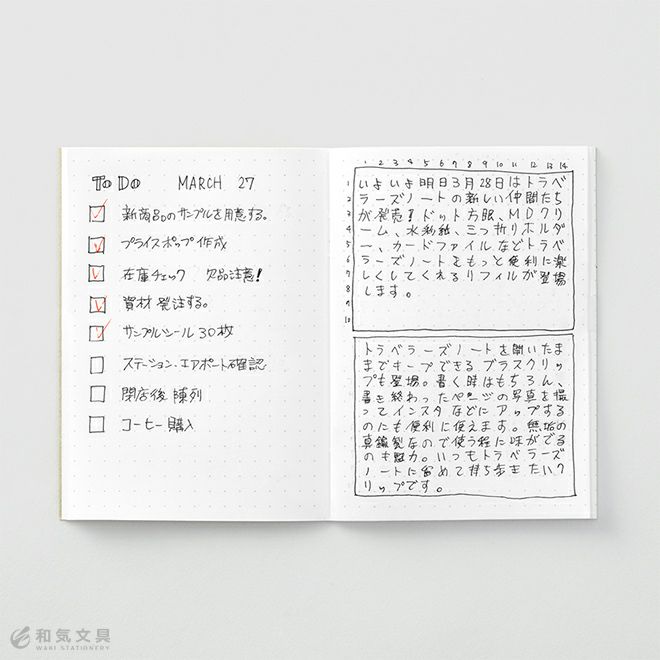 To Do MARCH 27
新商品のサンプルを用意する。
プライスポップ作成
在庫チェック 欠品注意!
資材発注する。
サンプルシール30枚
ステーション、エアポート確認
閉店後 陳列
コーヒー購入
1 2 3 4 5 6 7 8 9 10 11 12 13 14
1 いよいよ明日3月28日はトラベ
2 ラーズノートの新しい仲間たち
3 が発売!ドット方眼、MDクリ
4 ーム、水彩紙、三つ折りホルダ
5 ー、カードファイルなどトラベ
6 ラーズノートをもっと便利に楽
7 しくしてくれるリフィルが登場
8 します。
9
10
トラベラーズノートを開いたま
までキープできるブラスクリッ
プも登場。書く時はもちろん、
書き終わったページの写真を撮
ってインスタなどにアップする
のにも便利に使えます。無垢の
真鍮製なので使う程に味がでる
のも魅力。いつもトラベラーズ
ノートに留めて持ち歩きたいク
リップです。
和気文具
WAKI STATIONERY